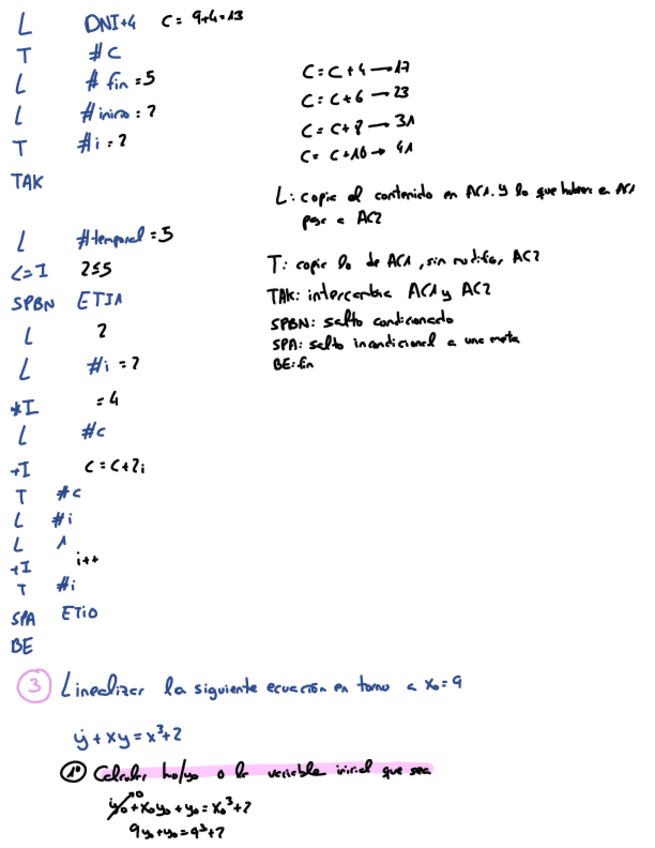 L DNI+4 C= 9+4=13
T #C
L # fin =5
L #inicio : 2
T #i = 2
TAK
C=C+4→17
C=C+6→23
C=C+8→31
C= C+10→ 41
L: copia el contenido en AC1. Y lo que hubiera en AC1 pasa a AC2
T: copia lo de AC1, sin modificar AC2
TAK: intercambia AC1 y AC2
SPBN: salto condicionado
SPA: salto incondicional a una meta
BE: fin
L #temporal =5
<=I 2≤5
SPBN ETI1
L 2
L #i = 2
*I = 4
L #c
+I C=C+2i
T #c
L #i
L 1
+I i++
T #i
SPA ETI0
BE
3 Linealizar la siguiente ecuación en torno a x₀=9
ẏ + xy = x³+2
1º Calcular h₀/y₀ o la variable inicial que sea
ẏ₀→0 + x₀y₀ + y₀ = x₀³+2
9y₀+y₀=9³+2